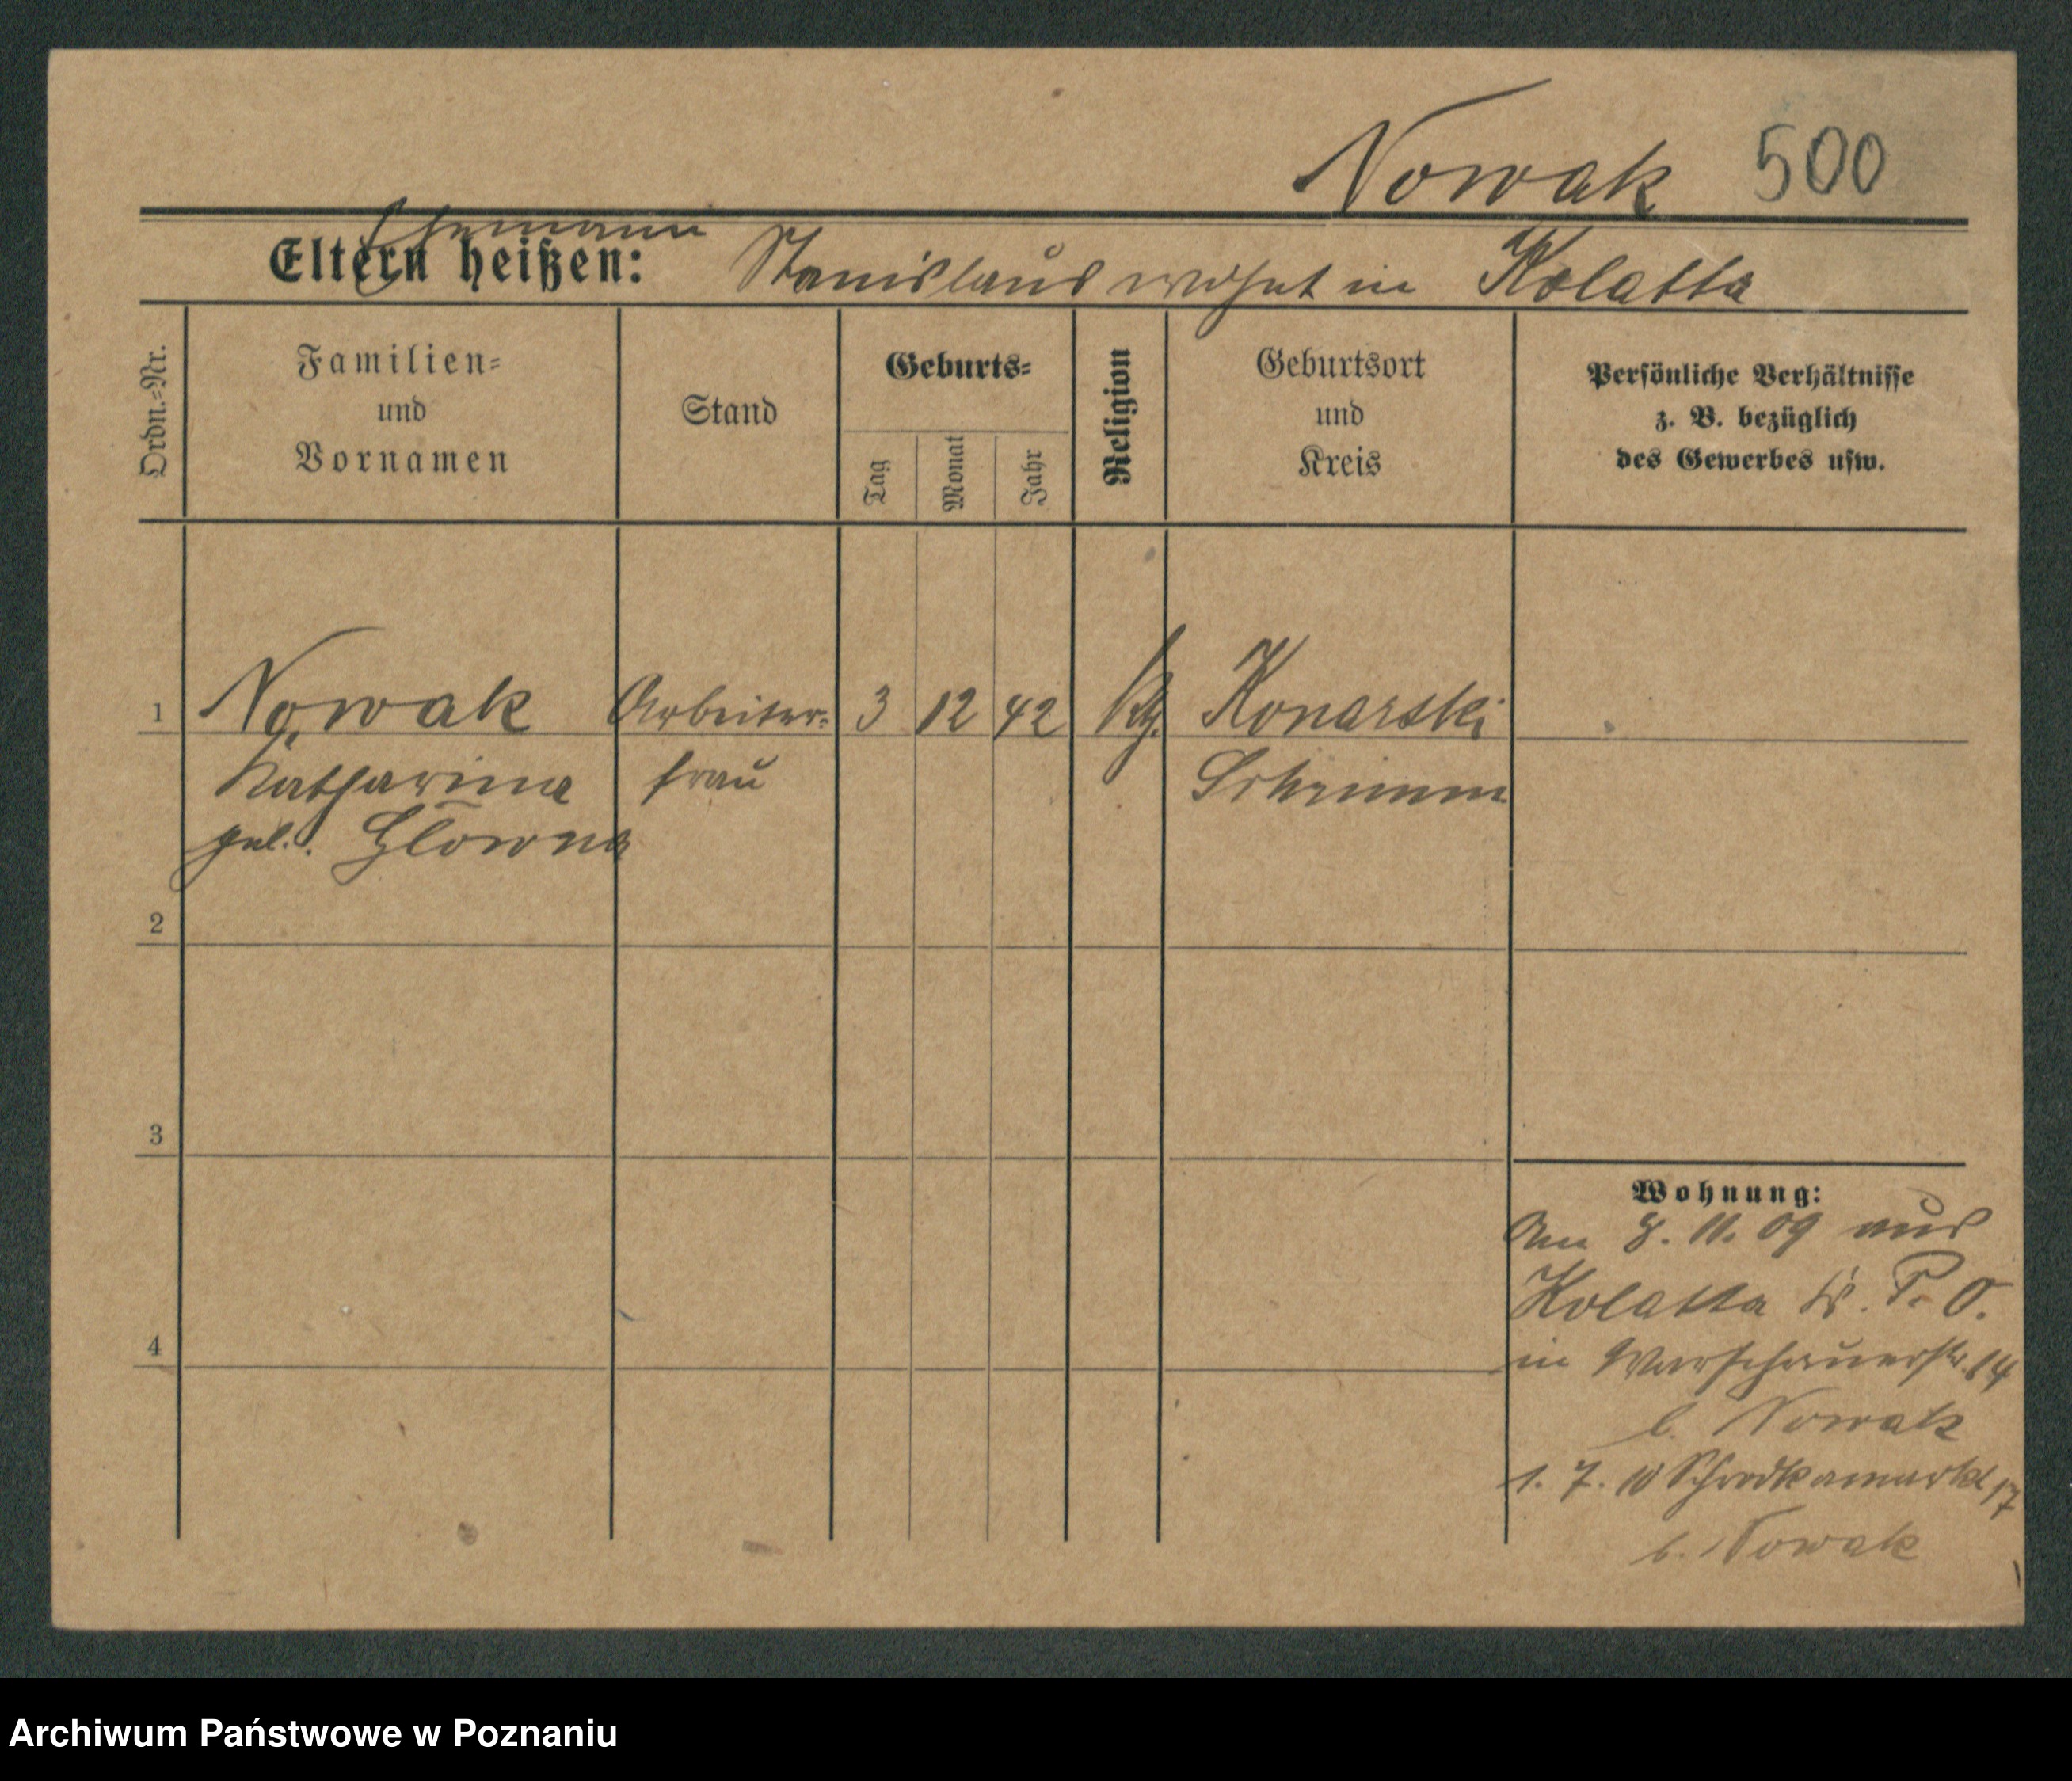 Nowak 500
Ehemann
Eltern heißen: Stanislaus wohnt in Kolatta
Ordn.-Nr.
Familien-
und
Vornamen
Stand
Geburts-
Tag
Monat
Jahr
Religion
Geburtsort
und
Kreis
Persönliche Verhältnisse
z. B. bezüglich
des Gewerbes usw.
1 Nowak Arbeiter- 3 12 42 kth. Konarski
Katharina frau Schrimm
geb. Glowna
2
3
Wohnung:
Am 8. 11. 09 aus
Kolatta Kr. P. O.
4
in Warschauerstr. 14
b. Nowak
1. 7. 10 Schrodkamarkt 17
b. Nowak
Archiwum Państwowe w Poznaniu